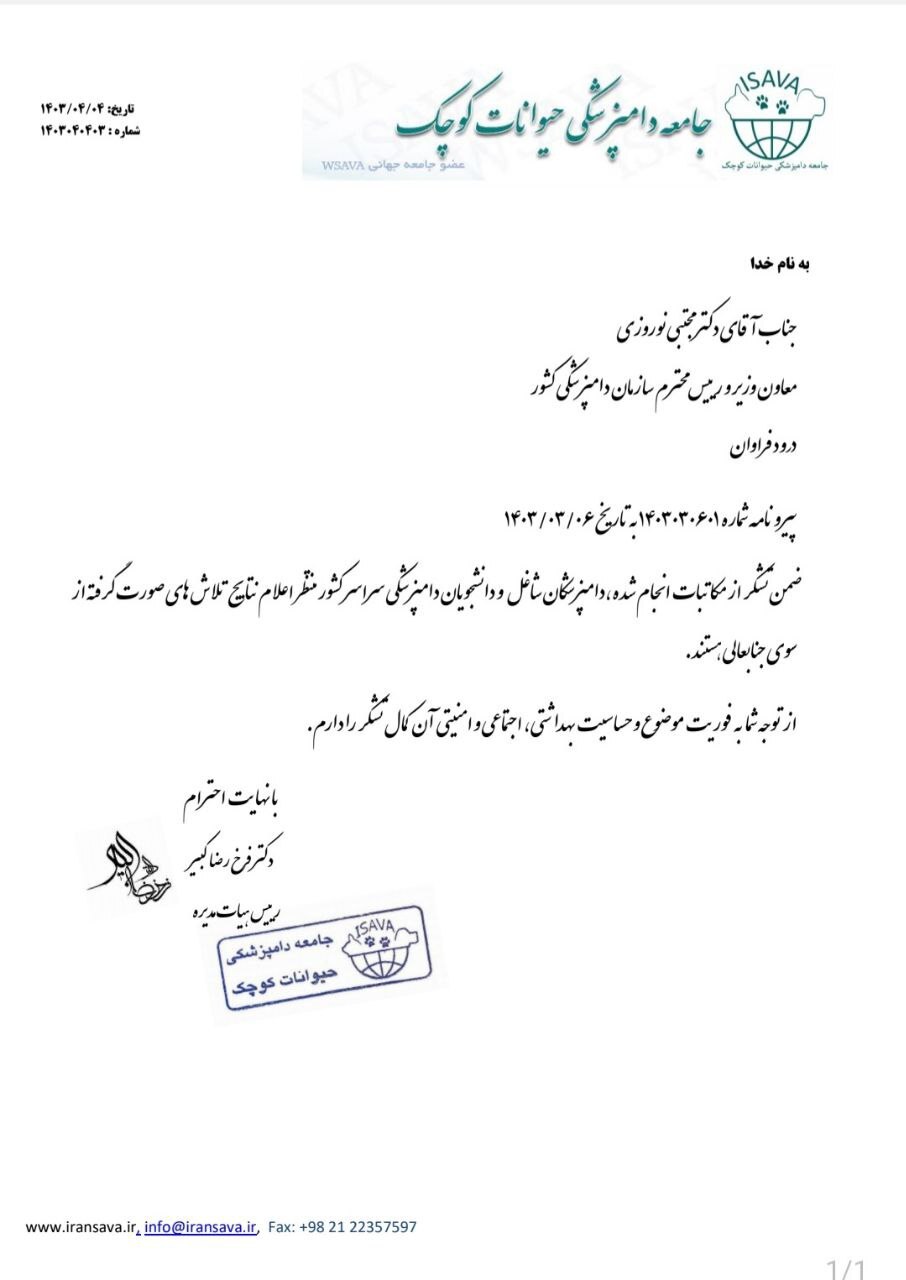 تاریخ: ۱۴۰۳/۰۴/۰۴
شماره : ۱۴۰۳۰۴۰۴۰۳
جامعه دامپزشکی حیوانات کوچک
عضو جامعه جهانی WSAVA
ISAVA
جامعه دامپزشکی حیوانات کوچک
به نام خدا
جناب آقای دکتر مجتبی نوروزی
معاون وزیر و رییس محترم سازمان دامپزشکی کشور
درود فراوان
پیرو نامه شماره ۱۴۰۳۰۳۰۶۰۱ به تاریخ ۱۴۰۳/۰۳/۰۶
ضمن تشکر از مکاتبات انجام شده، دامپزشکان شاغل و دانشجویان دامپزشکی سراسر کشور منتظر اعلام نتایج تلاش های صورت گرفته از
سوی جنابعالی هستند.
از توجه شما به فوریت موضوع و حساسیت بهداشتی، اجتماعی و امنیتی آن کمال تشکر را دارم.
با نهایت احترام
دکتر فرخ رضا کبیر
رییس هیات مدیره
ISAVA
جامعه دامپزشکی
حیوانات کوچک
www.iransava.ir, info@iransava.ir, Fax: +98 21 22357597
1/1